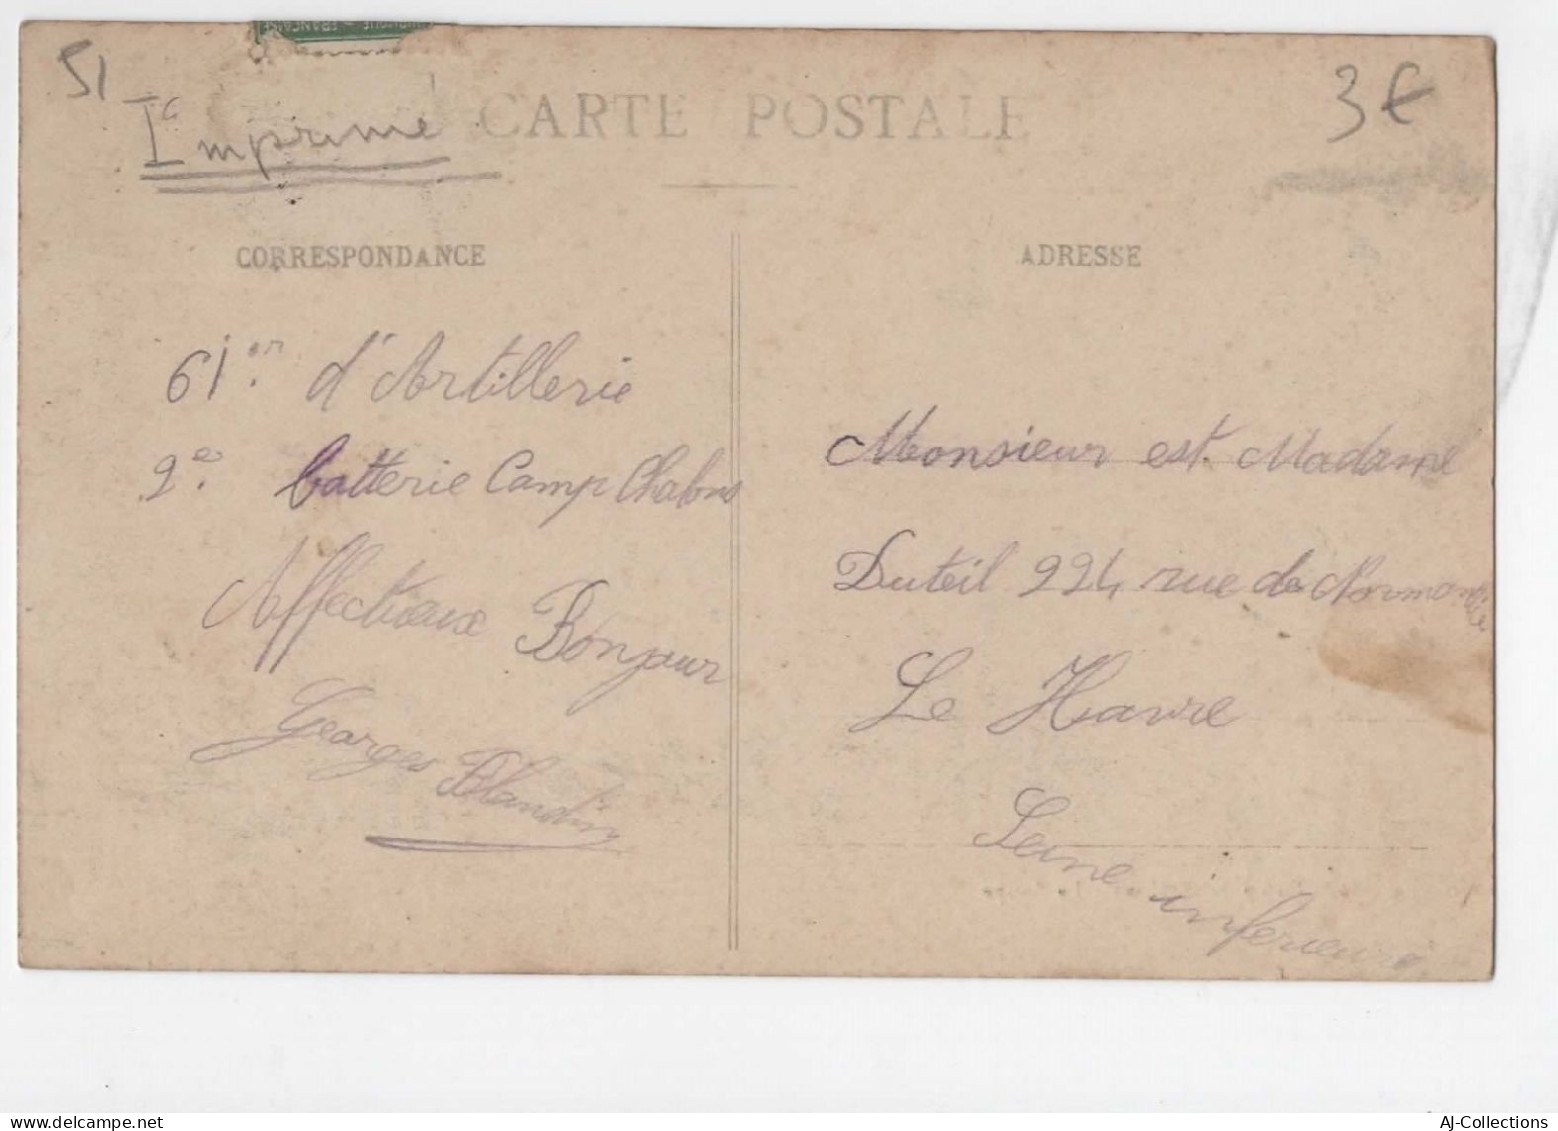 51
Imprimé
CARTE POSTALE
3€
CORRESPONDANCE
ADRESSE
61er. d'Artillerie
2e. batterie Camp Chalons
Affectieux Bonjour
Georges Blandin
Monsieur est Madame
Duteil 224 rue de Normandie
Le Havre
Seine inferieure
AJ-Collections